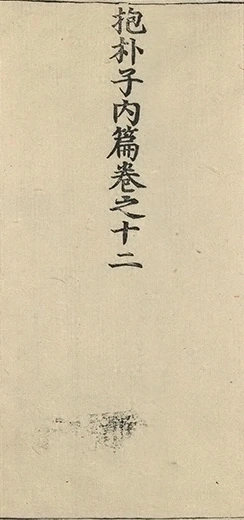 抱朴子内篇卷之十二